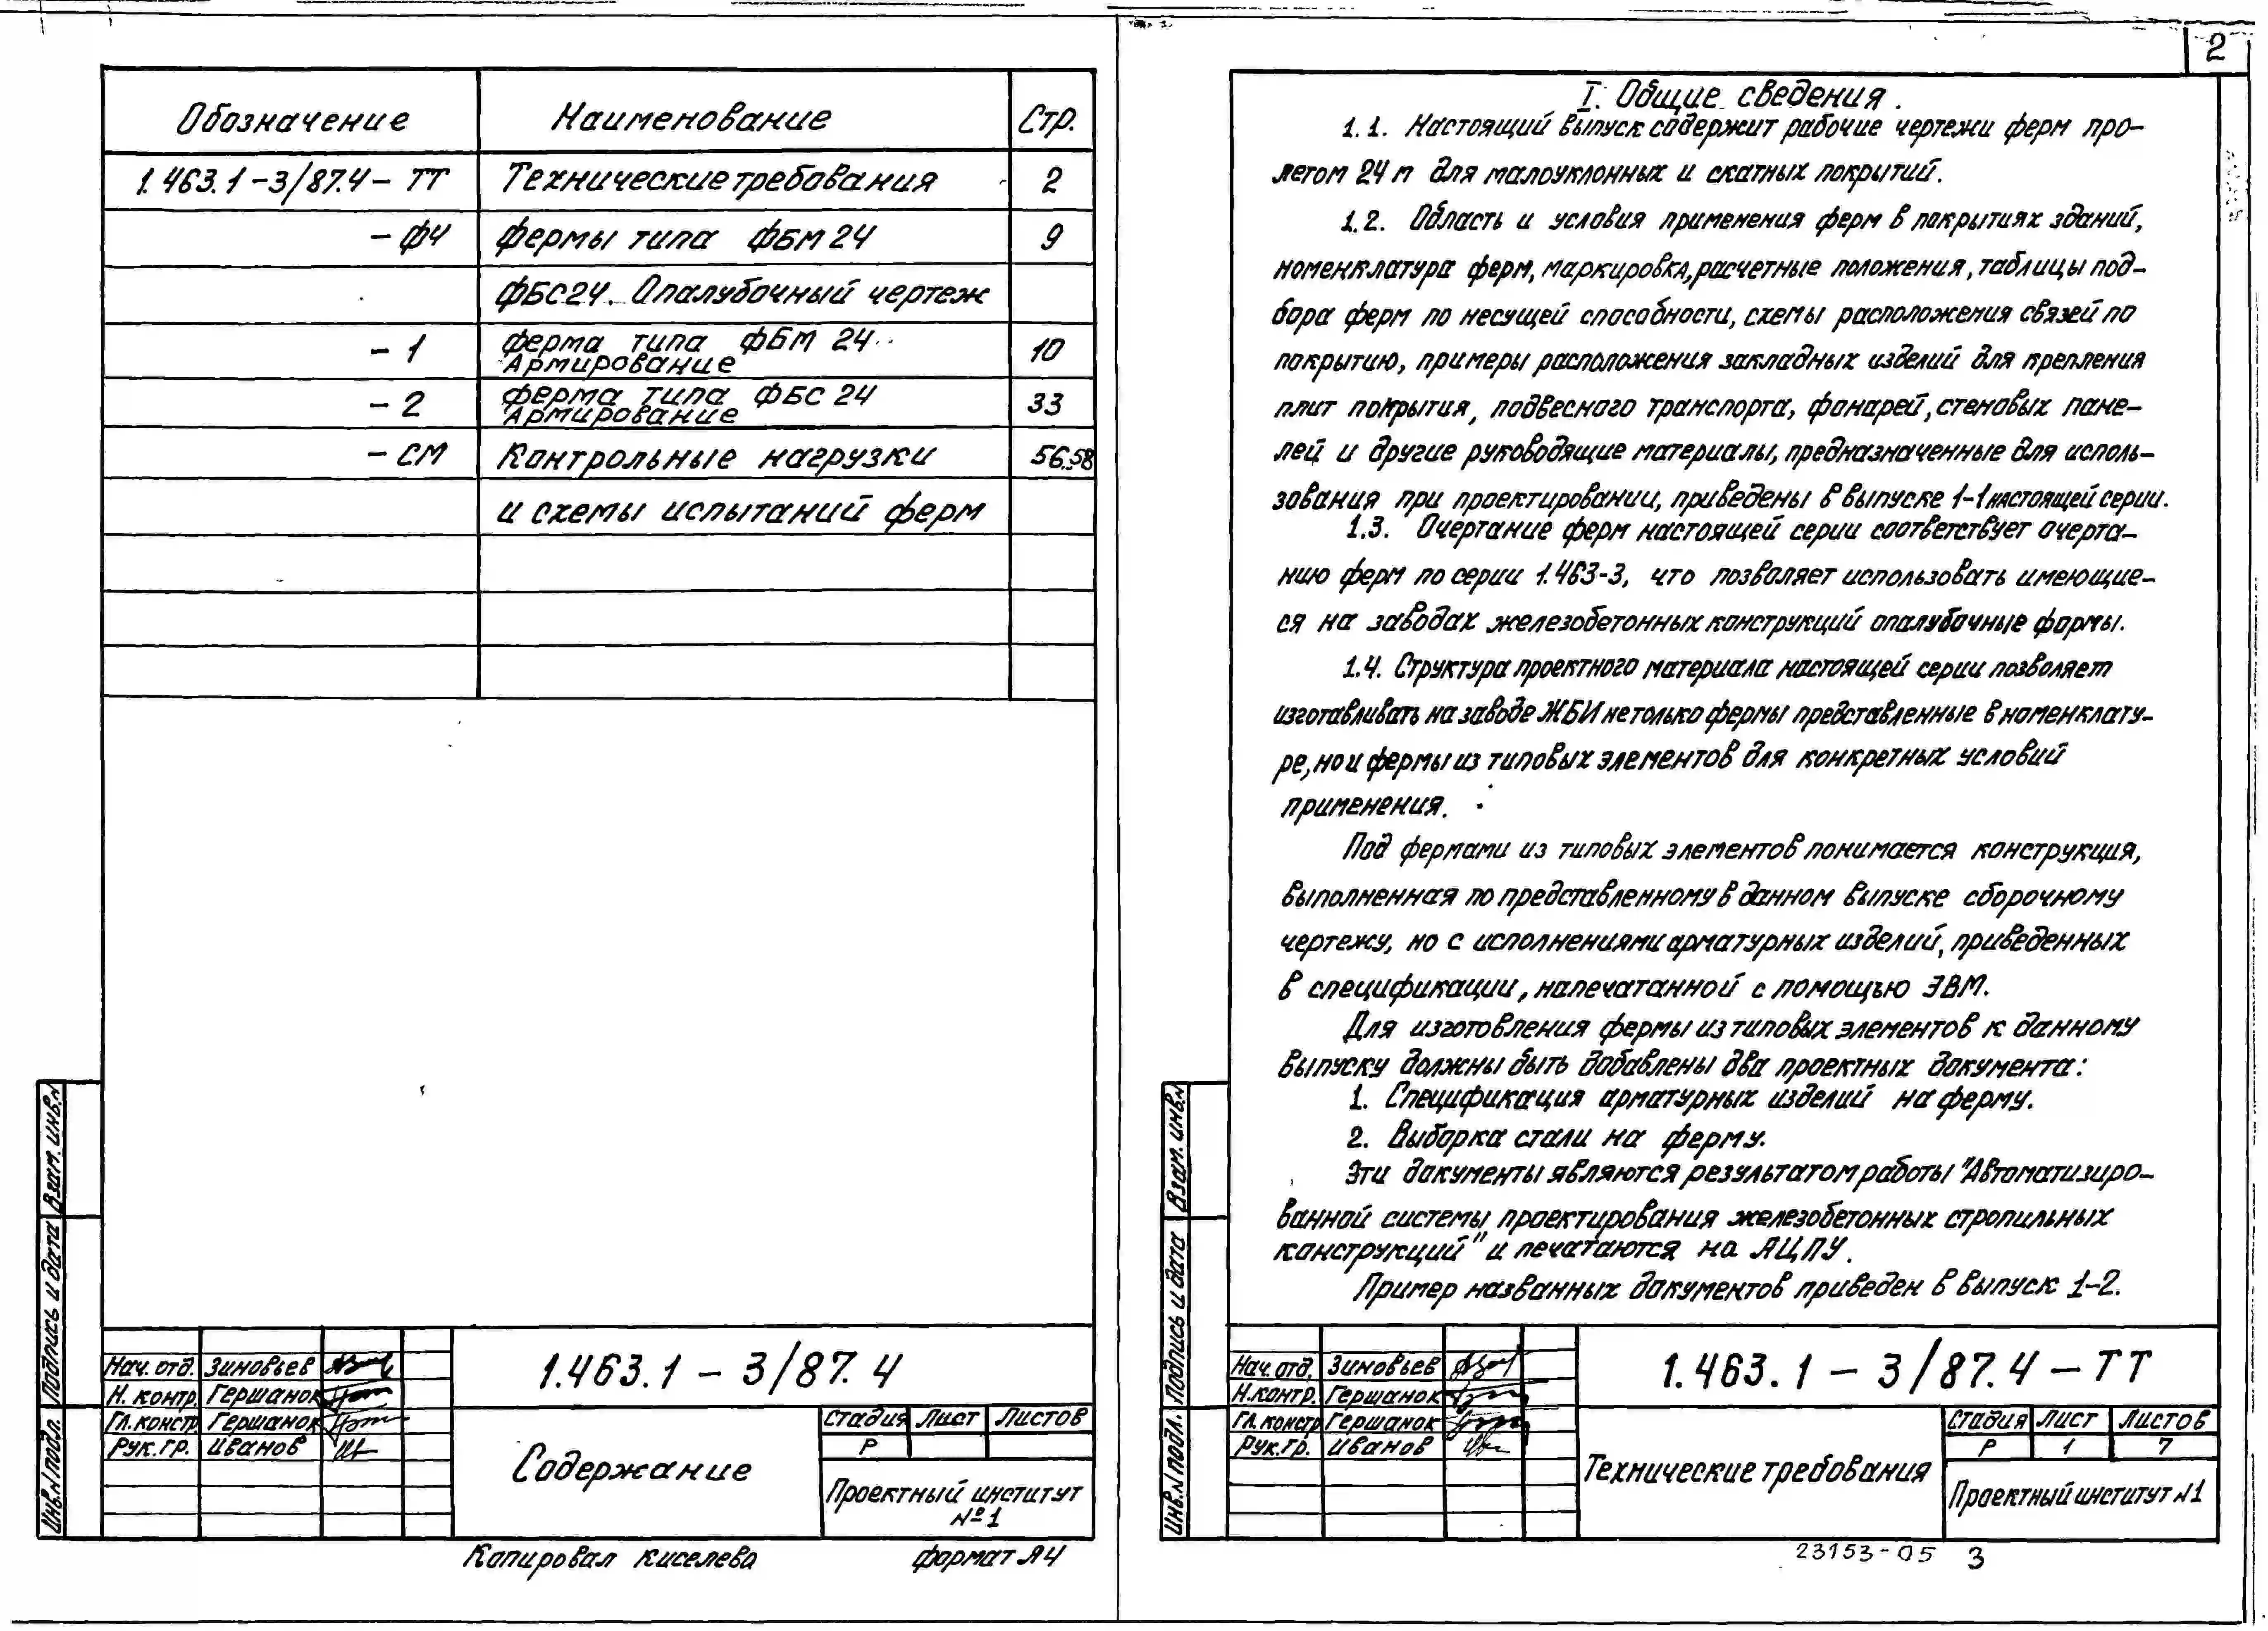 Обозначение Наименование Стр.
1.463.1-3/87.4-ТТ Технические требования 2
-ФЧ Фермы типа ФБМ 24 9
ФБС24. Опалубочный чертеж
-1 Ферма типа ФБМ 24 10
Армирование
-2 Ферма типа ФБС 24 33
Армирование
-СМ Контрольные нагрузки 56.58
и схемы испытаний ферм
Взам. инв.N
Подпись и дата
Инв.N подл.
Нач. отд. Зиновьев
Н. контр. Гершанок
Гл. констр. Гершанок
Рук. гр. Иванов
1.463.1-3/87.4
Содержание
Стадия Лист Листов
Р
Проектный институт
№1
Копировал Киселева формат А4
2
I. Общие сведения.
1.1. Настоящий выпуск содержит рабочие чертежи ферм про-
летом 24 м для малоуклонных и скатных покрытий.
1.2. Область и условия применения ферм в покрытиях зданий,
номенклатура ферм, маркировка, расчетные положения, таблицы под-
бора ферм по несущей способности, схемы расположения связей по
покрытию, примеры расположения закладных изделий для крепления
плит покрытия, подвесного транспорта, фонарей, стеновых пане-
лей и другие руководящие материалы, предназначенные для исполь-
зования при проектировании, приведены в выпуске 1-1 настоящей серии.
1.3. Очертание ферм настоящей серии соответствует очерта-
нию ферм по серии 1.463-3, что позволяет использовать имеющие-
ся на заводах железобетонных конструкций опалубочные формы.
1.4. Структура проектного материала настоящей серии позволяет
изготавливать на заводе ЖБИ не только фермы представленные в номенклату-
ре, но и фермы из типовых элементов для конкретных условий
применения.
Под фермами из типовых элементов понимается конструкция,
выполненная по представленному в данном выпуске сборочному
чертежу, но с исполнениями арматурных изделий, приведенных
в спецификации, напечатанной с помощью ЭВМ.
Для изготовления фермы из типовых элементов к данному
выпуску должны быть добавлены два проектных документа:
1. Спецификация арматурных изделий на ферму.
2. Выборка стали на ферму.
Эти документы являются результатом работы "Автоматизиро-
ванной системы проектирования железобетонных стропильных
конструкций" и печатаются на АЦПУ.
Пример названных документов приведен в выпуск 1-2.
Взам. инв.N
Подпись и дата
Инв.N подл.
Нач. отд. Зиновьев
Н.контр. Гершанок
Гл. констр Гершанок
Рук. гр. Иванов
1.463.1-3/87.4-ТТ
Технические требования
Стадия Лист Листов
Р 1 7
Проектный институт N1
23153-05 3